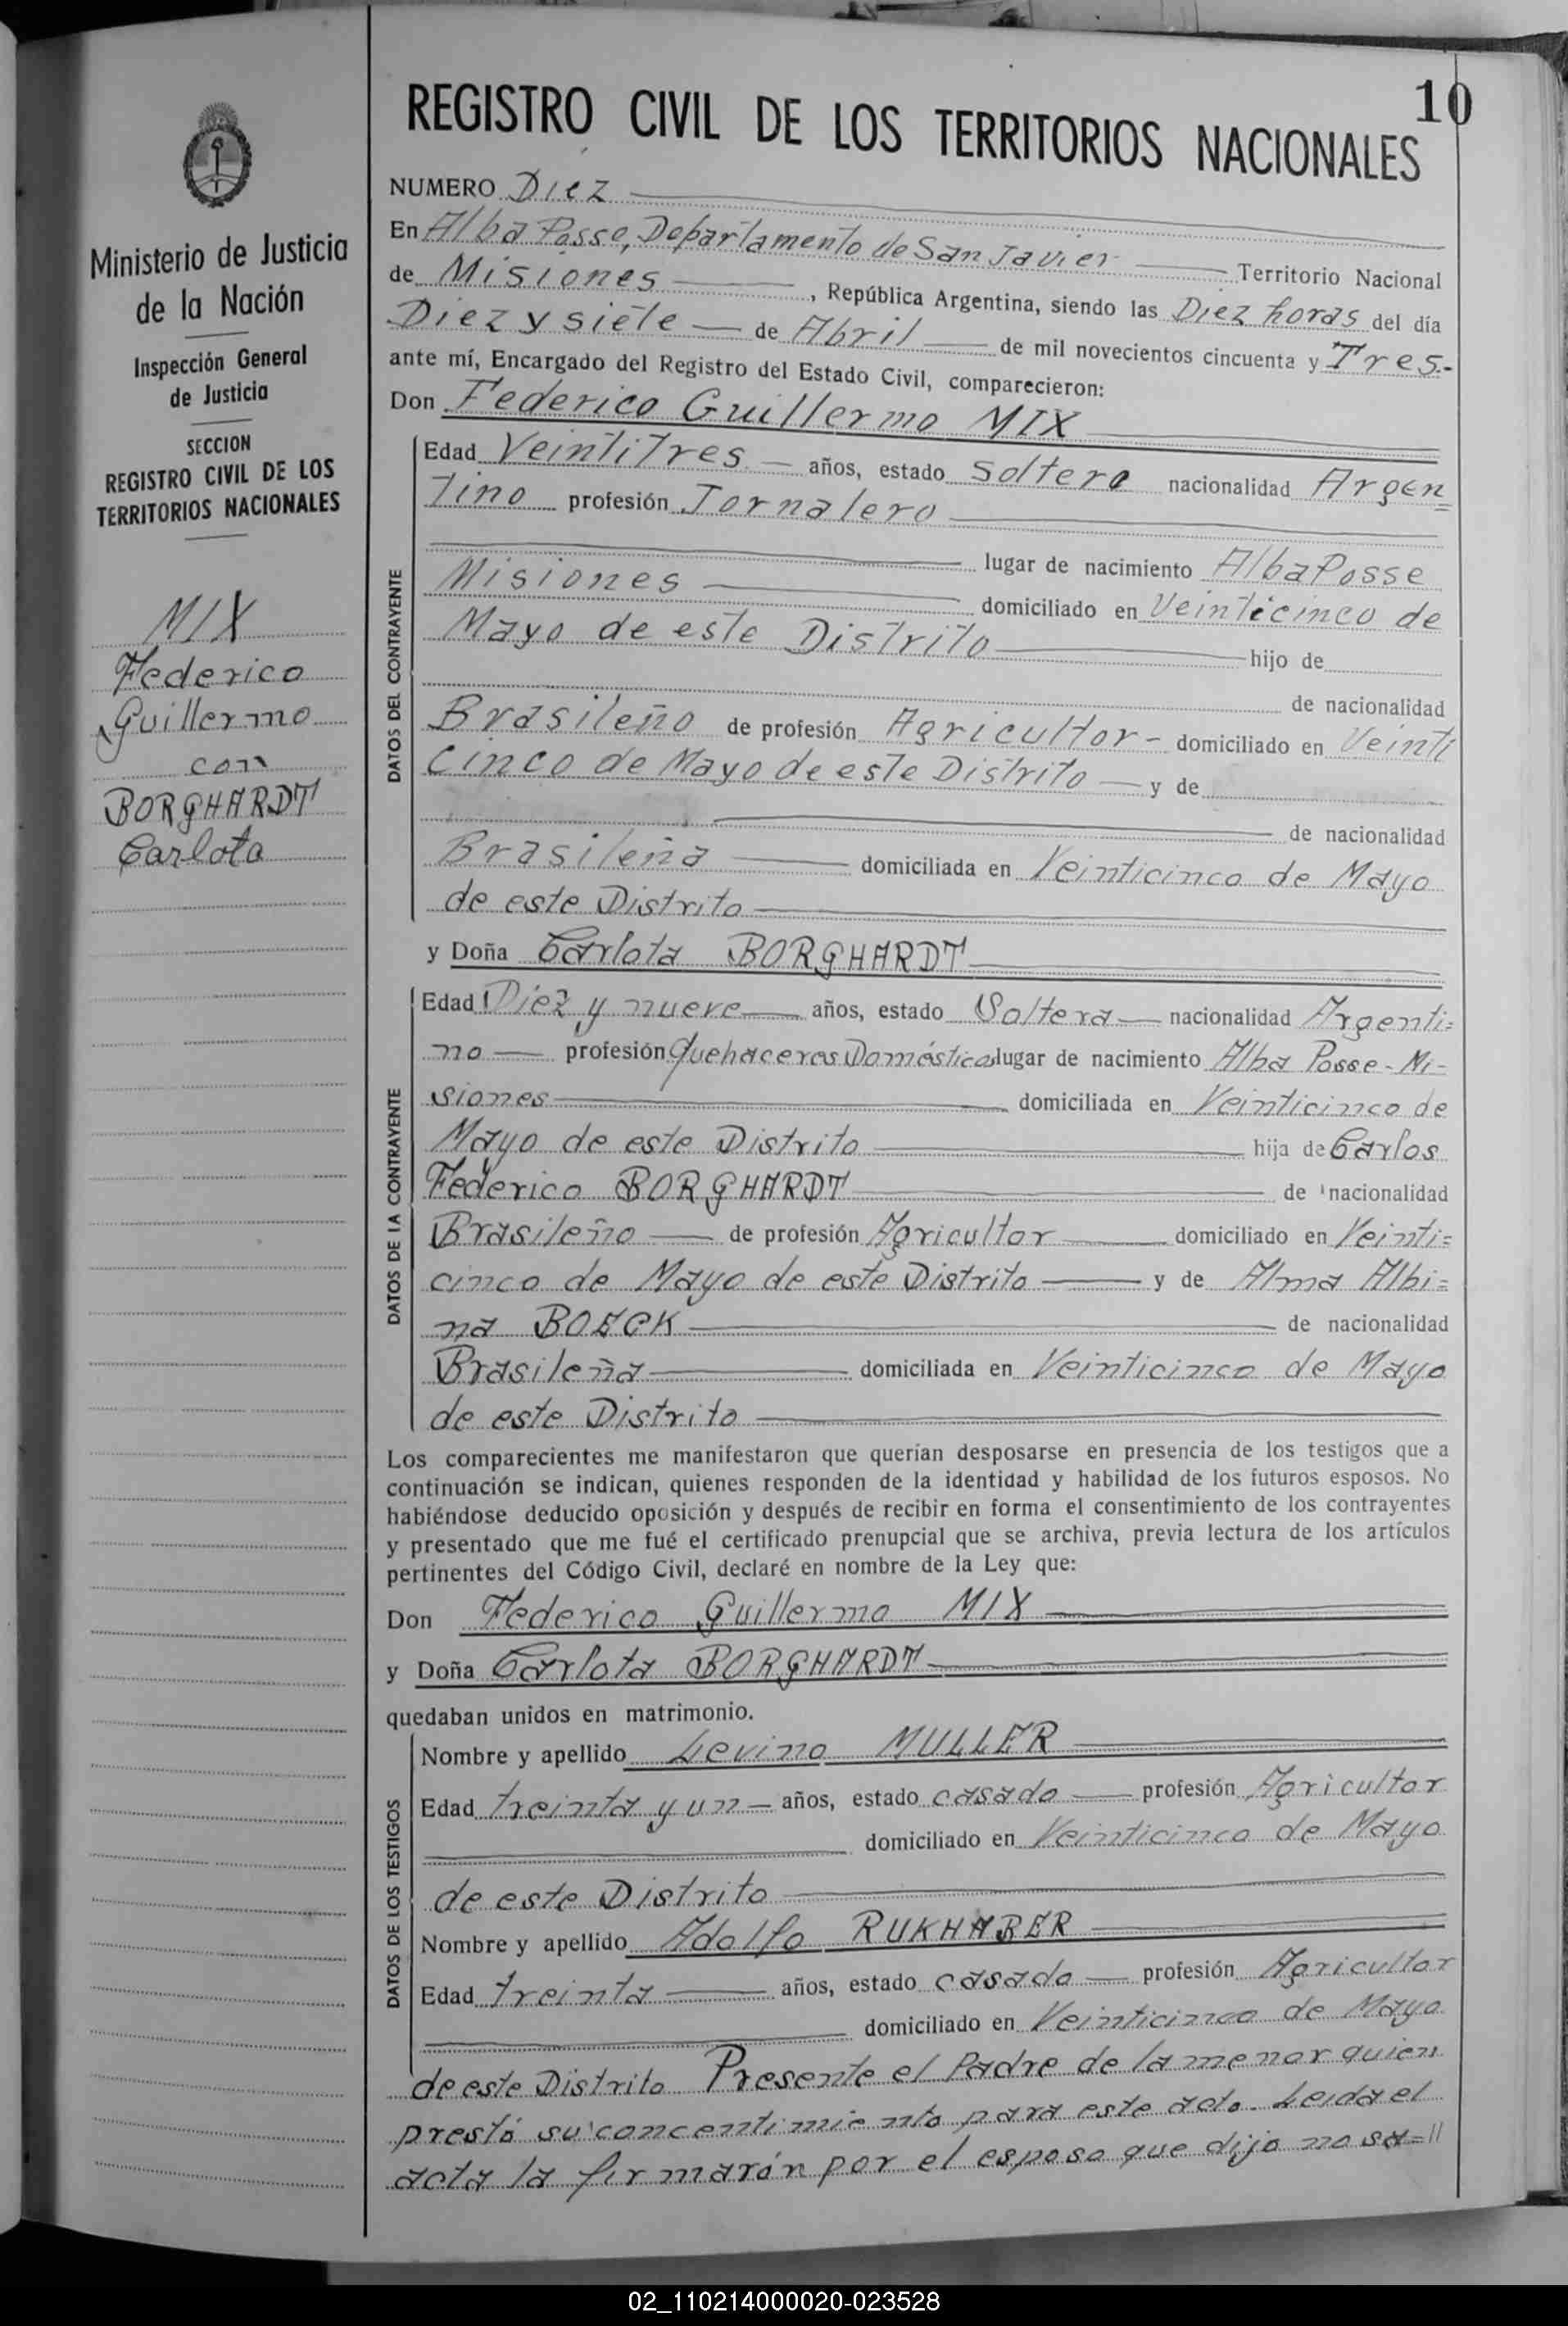 10
REGISTRO CIVIL DE LOS TERRITORIOS NACIONALES
Ministerio de Justicia
de la Nación
Inspección General
de Justicia
SECCION
REGISTRO CIVIL DE LOS
TERRITORIOS NACIONALES
MIX
Federico
Guillermo
con
BORGHARDT
Carlota
NUMERO Diez
En Alba Posse, Departamento de San Javier Territorio Nacional
de Misiones, República Argentina, siendo las Diez horas del día
Diez y siete de Abril de mil novecientos cincuenta y Tres.-
ante mí, Encargado del Registro del Estado Civil, comparecieron:
Don Federico Guillermo MIX
DATOS DEL CONTRAYENTE
Edad Veintitres años, estado Soltero nacionalidad Argen=
tino profesión Jornalero
lugar de nacimiento Alba Posse
Misiones domiciliado en Veinticinco de
Mayo de este Distrito hijo de
de nacionalidad
Brasileño de profesión Agricultor - domiciliado en Veinti
cinco de Mayo de este Distrito y de
de nacionalidad
Brasileña domiciliada en Veinticinco de Mayo
de este Distrito
y Doña Carlota BORGHARDT
DATOS DE LA CONTRAYENTE
Edad Diez y nueve años, estado Soltera nacionalidad Argenti=
no profesión Quehaceres Domésticos lugar de nacimiento Alba Posse - Mi-
siones domiciliada en Veinticinco de
Mayo de este Distrito hija de Carlos
Federico BORGHARDT de nacionalidad
Brasileño de profesión Agricultor domiciliado en Veinti=
cinco de Mayo de este Distrito y de Alma Albi=
na BOECK de nacionalidad
Brasileña domiciliada en Veinticinco de Mayo
de este Distrito
Los comparecientes me manifestaron que querían desposarse en presencia de los testigos que a
continuación se indican, quienes responden de la identidad y habilidad de los futuros esposos. No
habiéndose deducido oposición y después de recibir en forma el consentimiento de los contrayentes
y presentado que me fué el certificado prenupcial que se archiva, previa lectura de los artículos
pertinentes del Código Civil, declaré en nombre de la Ley que:
Don Federico Guillermo MIX
y Doña Carlota BORGHARDT
quedaban unidos en matrimonio.
DATOS DE LOS TESTIGOS
Nombre y apellido Levino MULLER
Edad treinta y un años, estado casado profesión Agricultor
domiciliado en Veinticinco de Mayo
de este Distrito
Nombre y apellido Adolfo RUKHABER
Edad treinta años, estado casado profesión Agricultor
domiciliado en Veinticinco de Mayo
de este Distrito Presente el Padre de la menor quien
prestó su concentimiento para este acto. Leida el
acta la firmarón por el esposo que dijo no sa=//
02_110214000020-023528